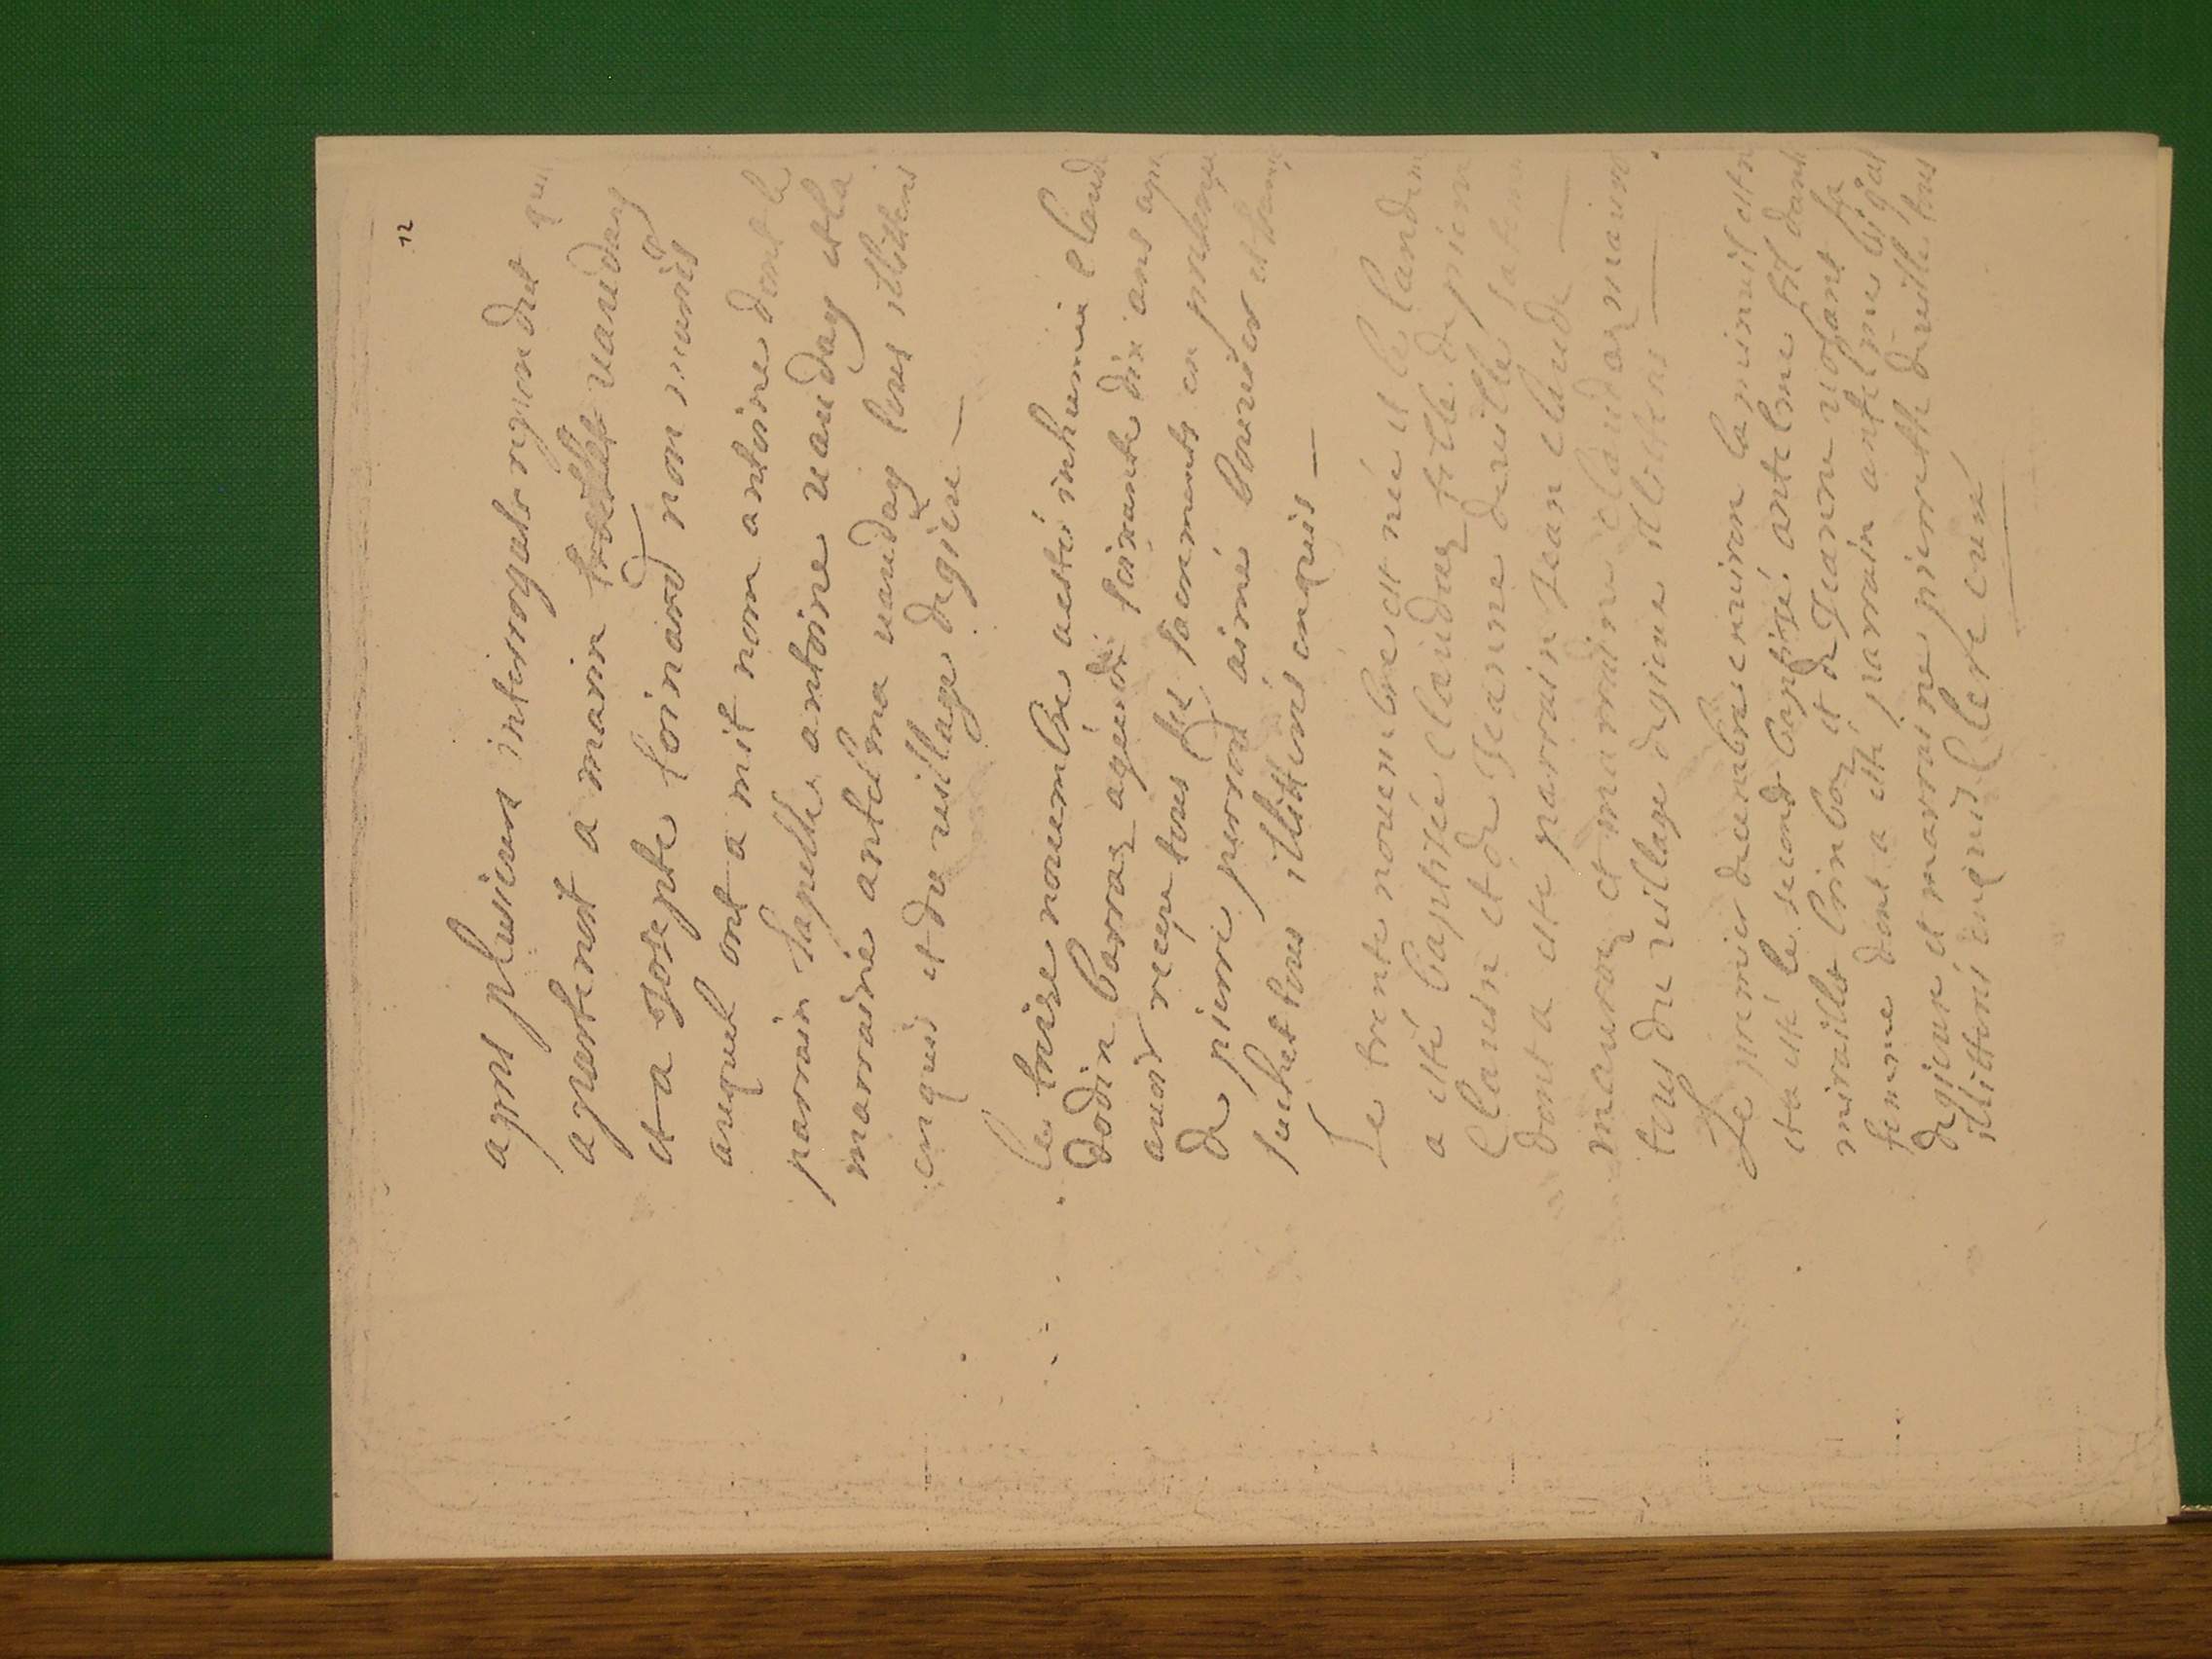 12
apres plusieurs interrogats repondit qu
apartenoit a marin vauday
et a josepte loinard non mariés
auquel ont a mit nom antoine dont le
parrain sapelle antoine vauday et la
marraine antelma vauday tous illitteres
enquis et du village degieu —
le treize novembre a esté inhumée claud
dodin barraz agée de soixante dix ans apr
avoir receu tous les sacrements en presence
de pierre perrod aimé bouvier et
suchet tous illitteres enquis —
Le trente novembre est née et le landem
a esté baptisée claudaz fille de pierre
clauin et de Jeanne druille sa femme
dont a esté parrain Jean claude —
mauroz et marraine claudaz mauro
tous du village degieux illitteres —
Le premier decembre environ la minuit est ne
et a esté le second baptisé antelme fil danth
miraillet boinboz et de Jeanne violant sa
femme dont a esté parrain antelme bigat
degieux et marraine pierrette druille tous
illitteres enquis Clerc curé